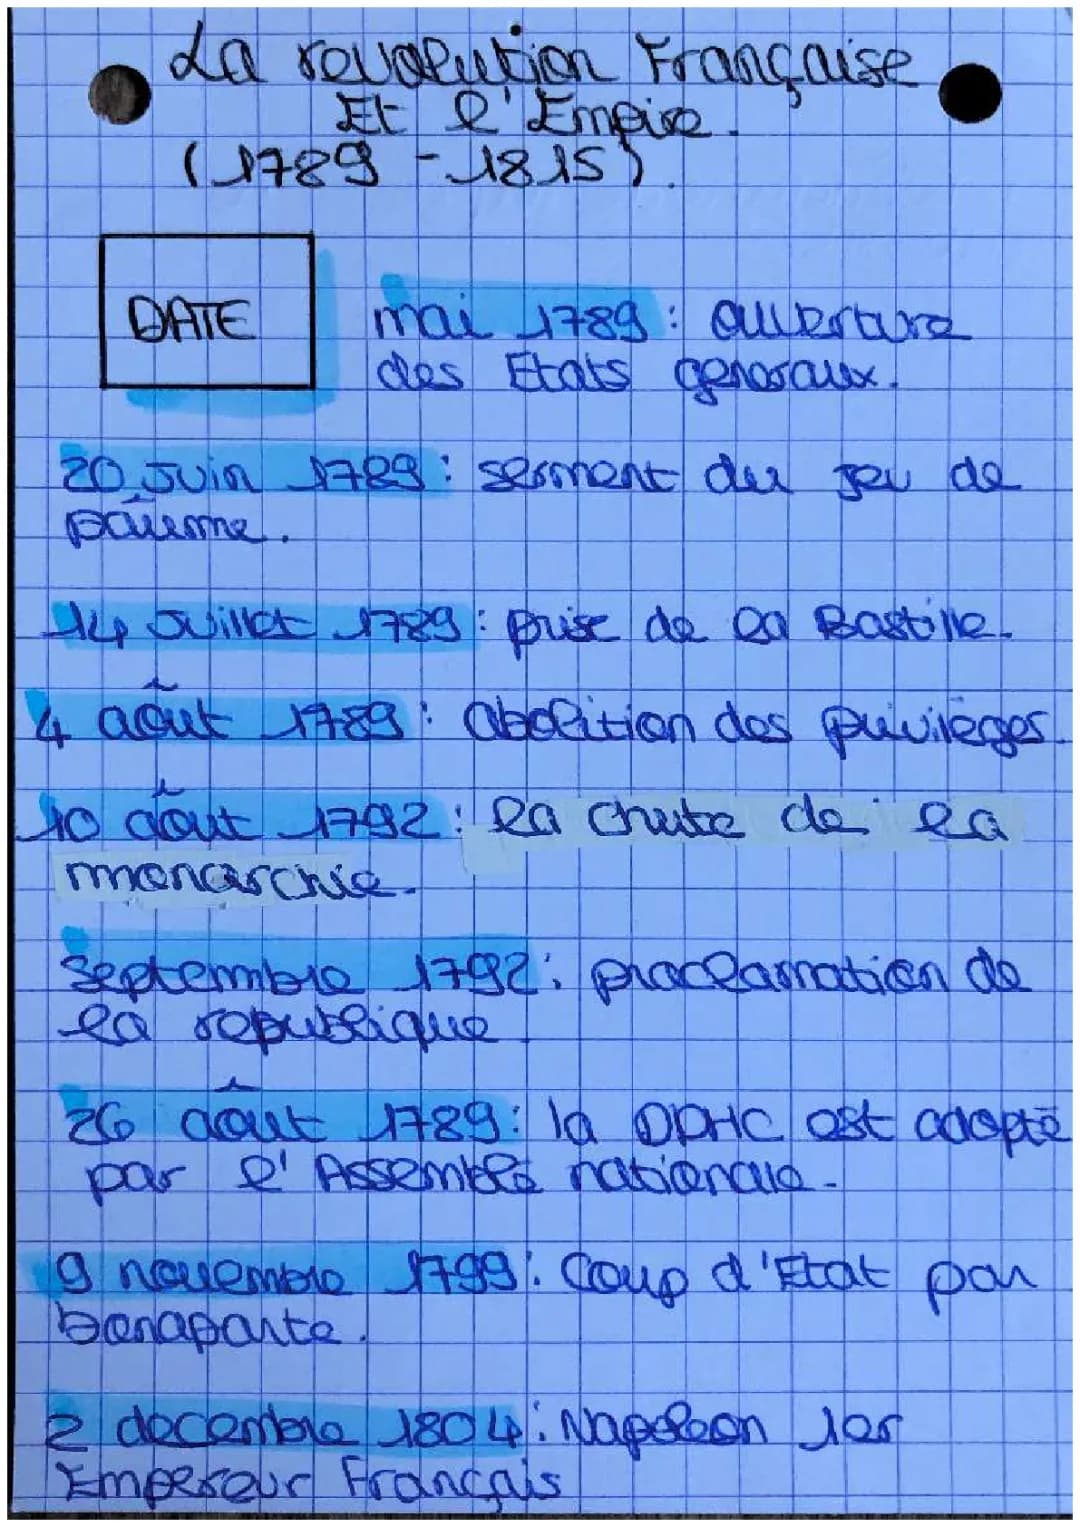 La revolution Française
Et l'Empire.
(1789 - 1815).
DATE
mai 1789 : ouverture
des Etats generaux.
20 Juin 1789 : serment du jeu de
paume.
14 Juillet 1789 : prise de la Bastille.
4 août 1789 : abolition des privilèges.
10 août 1792 : la chute de la
monarchie.
Septembre 1792 : proclamation de
la republique
26 août 1789 : la DDHC est adopté
par l'Assemblé nationale.
9 novembre 1799 : Coup d'Etat par
bonaparte.
2 decembre 1804 : Napoleon 1er
Empereur Français